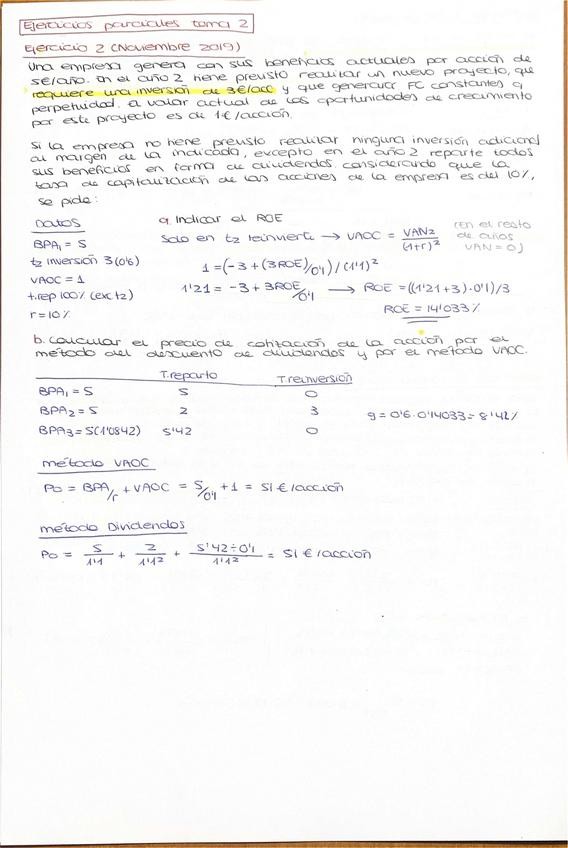 Ejercicios parciales tema 2
Ejercicio 2 (Noviembre 2019)
Una empresa genera con sus beneficios actuales por acción de
5€/año. En el año 2 tiene previsto realizar un nuevo proyecto, que
requiere una inversión de 3€/acc y que generará FC constantes a
perpetuidad. El valor actual de las oportunidades de crecimiento
por este proyecto es de 1€/acción.
Si la empresa no tiene previsto realizar ninguna inversión adicional
al margen de la indicada, excepto en el año 2 reparte todos
sus beneficios en forma de dividendos, considerando que la
tasa de capitalización de las acciones de la empresa es del 10%,
se pide:
Datos
BPA₁ = 5
t2 inversión 3 (0'6)
VAOC = 1
t.rep 100% (exc t2)
r = 10%
a. Indicar el ROE
Solo en t2 reinvierte → VAOC = VAN2/(1+r)² (en el resto de años VAN = 0)
1 = (-3 + (3ROE)/0'1) / (1'1)²
1'21 = -3 + 3ROE/0'1 → ROE = ((1'21+3)·0'1)/3
ROE = 14'033%
b. Calcular el precio de cotización de la acción por el
método del descuento de dividendos y por el método VAOC.
T.reparto T.reinversión
BPA₁ = 5 5 0
BPA₂ = 5 2 3 g = 0'6·0'14033 = 8'42%
BPA₃ = 5(1'0842) 5'42 0
método VAOC
P0 = BPA/r + VAOC = 5/0'1 + 1 = 51 €/acción
método Dividendos
P0 = 5/1'1 + 2/1'1² + 5'42÷0'1/1'1² = 51 €/acción